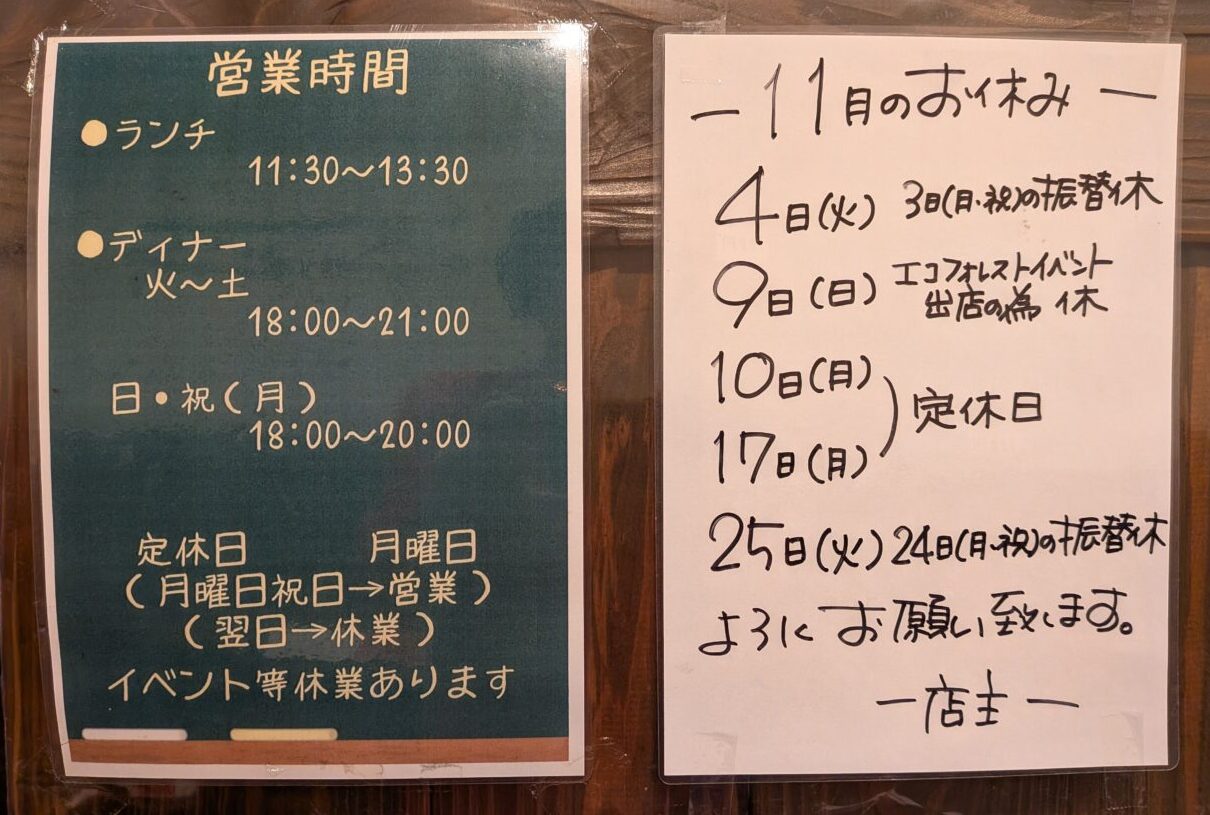 営業時間
●ランチ
11:30～13:30
●ディナー
火～土
18:00～21:00
日・祝(月)
18:00～20:00
定休日 月曜日
(月曜日祝日→営業)
(翌日→休業)
イベント等休業あります
ー11月のお休みー
4日(火) 3日(月・祝)の振替休
9日(日) エコフォレストイベント
出店の為 休
10日(月)
定休日
17日(月)
25日(火) 24日(月・祝)の振替休
よろしくお願い致します。
ー店主ー